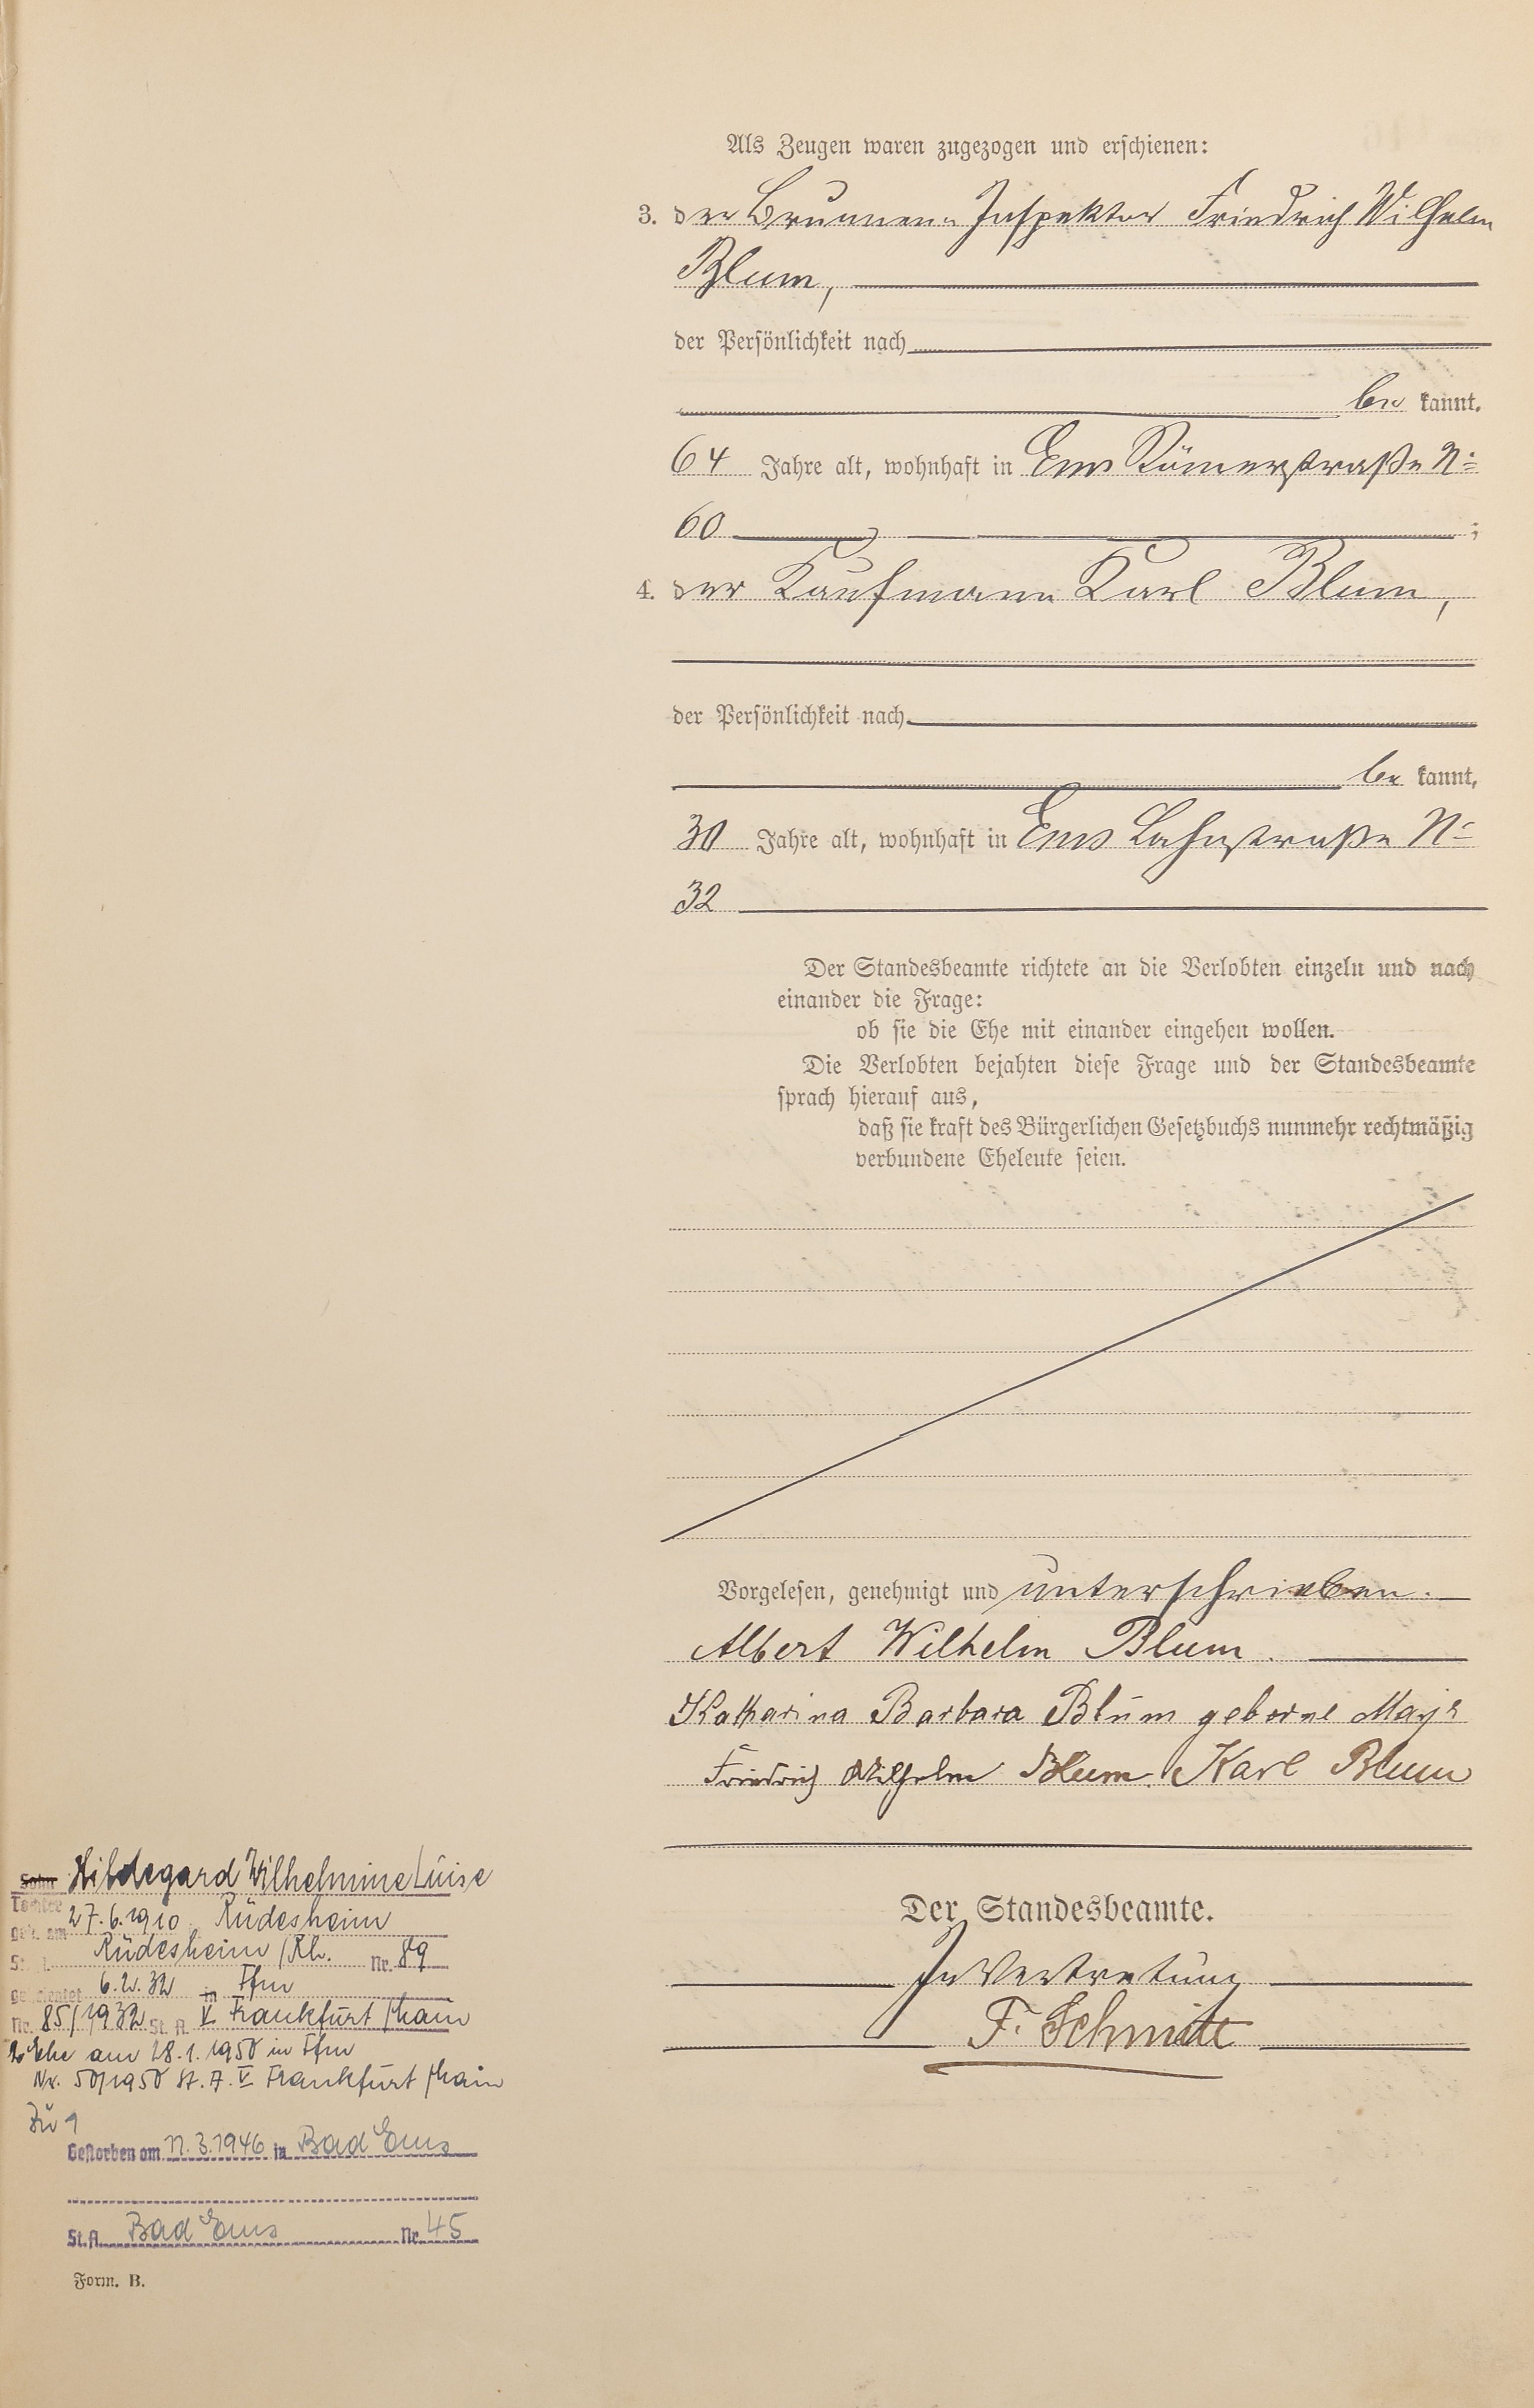 Als Zeugen waren zugezogen und erschienen:
3. der Brunnen-Inspektor Friedrich Wilhelm
Blum,
der Persönlichkeit nach
be kannt,
64 Jahre alt, wohnhaft in Ems Römerstraße No
60 ;
4. der Kaufmann Karl Blum,
der Persönlichkeit nach
be kannt,
30 Jahre alt, wohnhaft in Ems Lahnstraße No
32
Der Standesbeamte richtete an die Verlobten einzeln und nach
einander die Frage:
ob sie die Ehe mit einander eingehen wollen.
Die Verlobten bejahten diese Frage und der Standesbeamte
sprach hierauf aus,
daß sie kraft des Bürgerlichen Gesetzbuchs nunmehr rechtmäßig
verbundene Eheleute seien.
Vorgelesen, genehmigt und unterschrieben.
Albert Wilhelm Blum.
Katharina Barbara Blum geborne
Friedrich Wilhelm Blum. Karl Blum
Der Standesbeamte.
In Vertretung
F. Schmitt
Sohn Hildegard Wilhelmine Luise
Tochter
geb. am 27.6.1910 Rüdesheim
St. A. Rüdesheim /Rh. Nr. 89
geheiratet 6.2.32 in Ffm
Nr. 85/1932 St. A. V Frankfurt /Main
2. Ehe am 28.1.1950 in Ffm
Nr. 50/1950 St. A. V Frankfurt /Main
Zu 1
Gestorben am 11.3.1946 in Bad Ems
St. A. Bad Ems Nr. 45
Form. B.